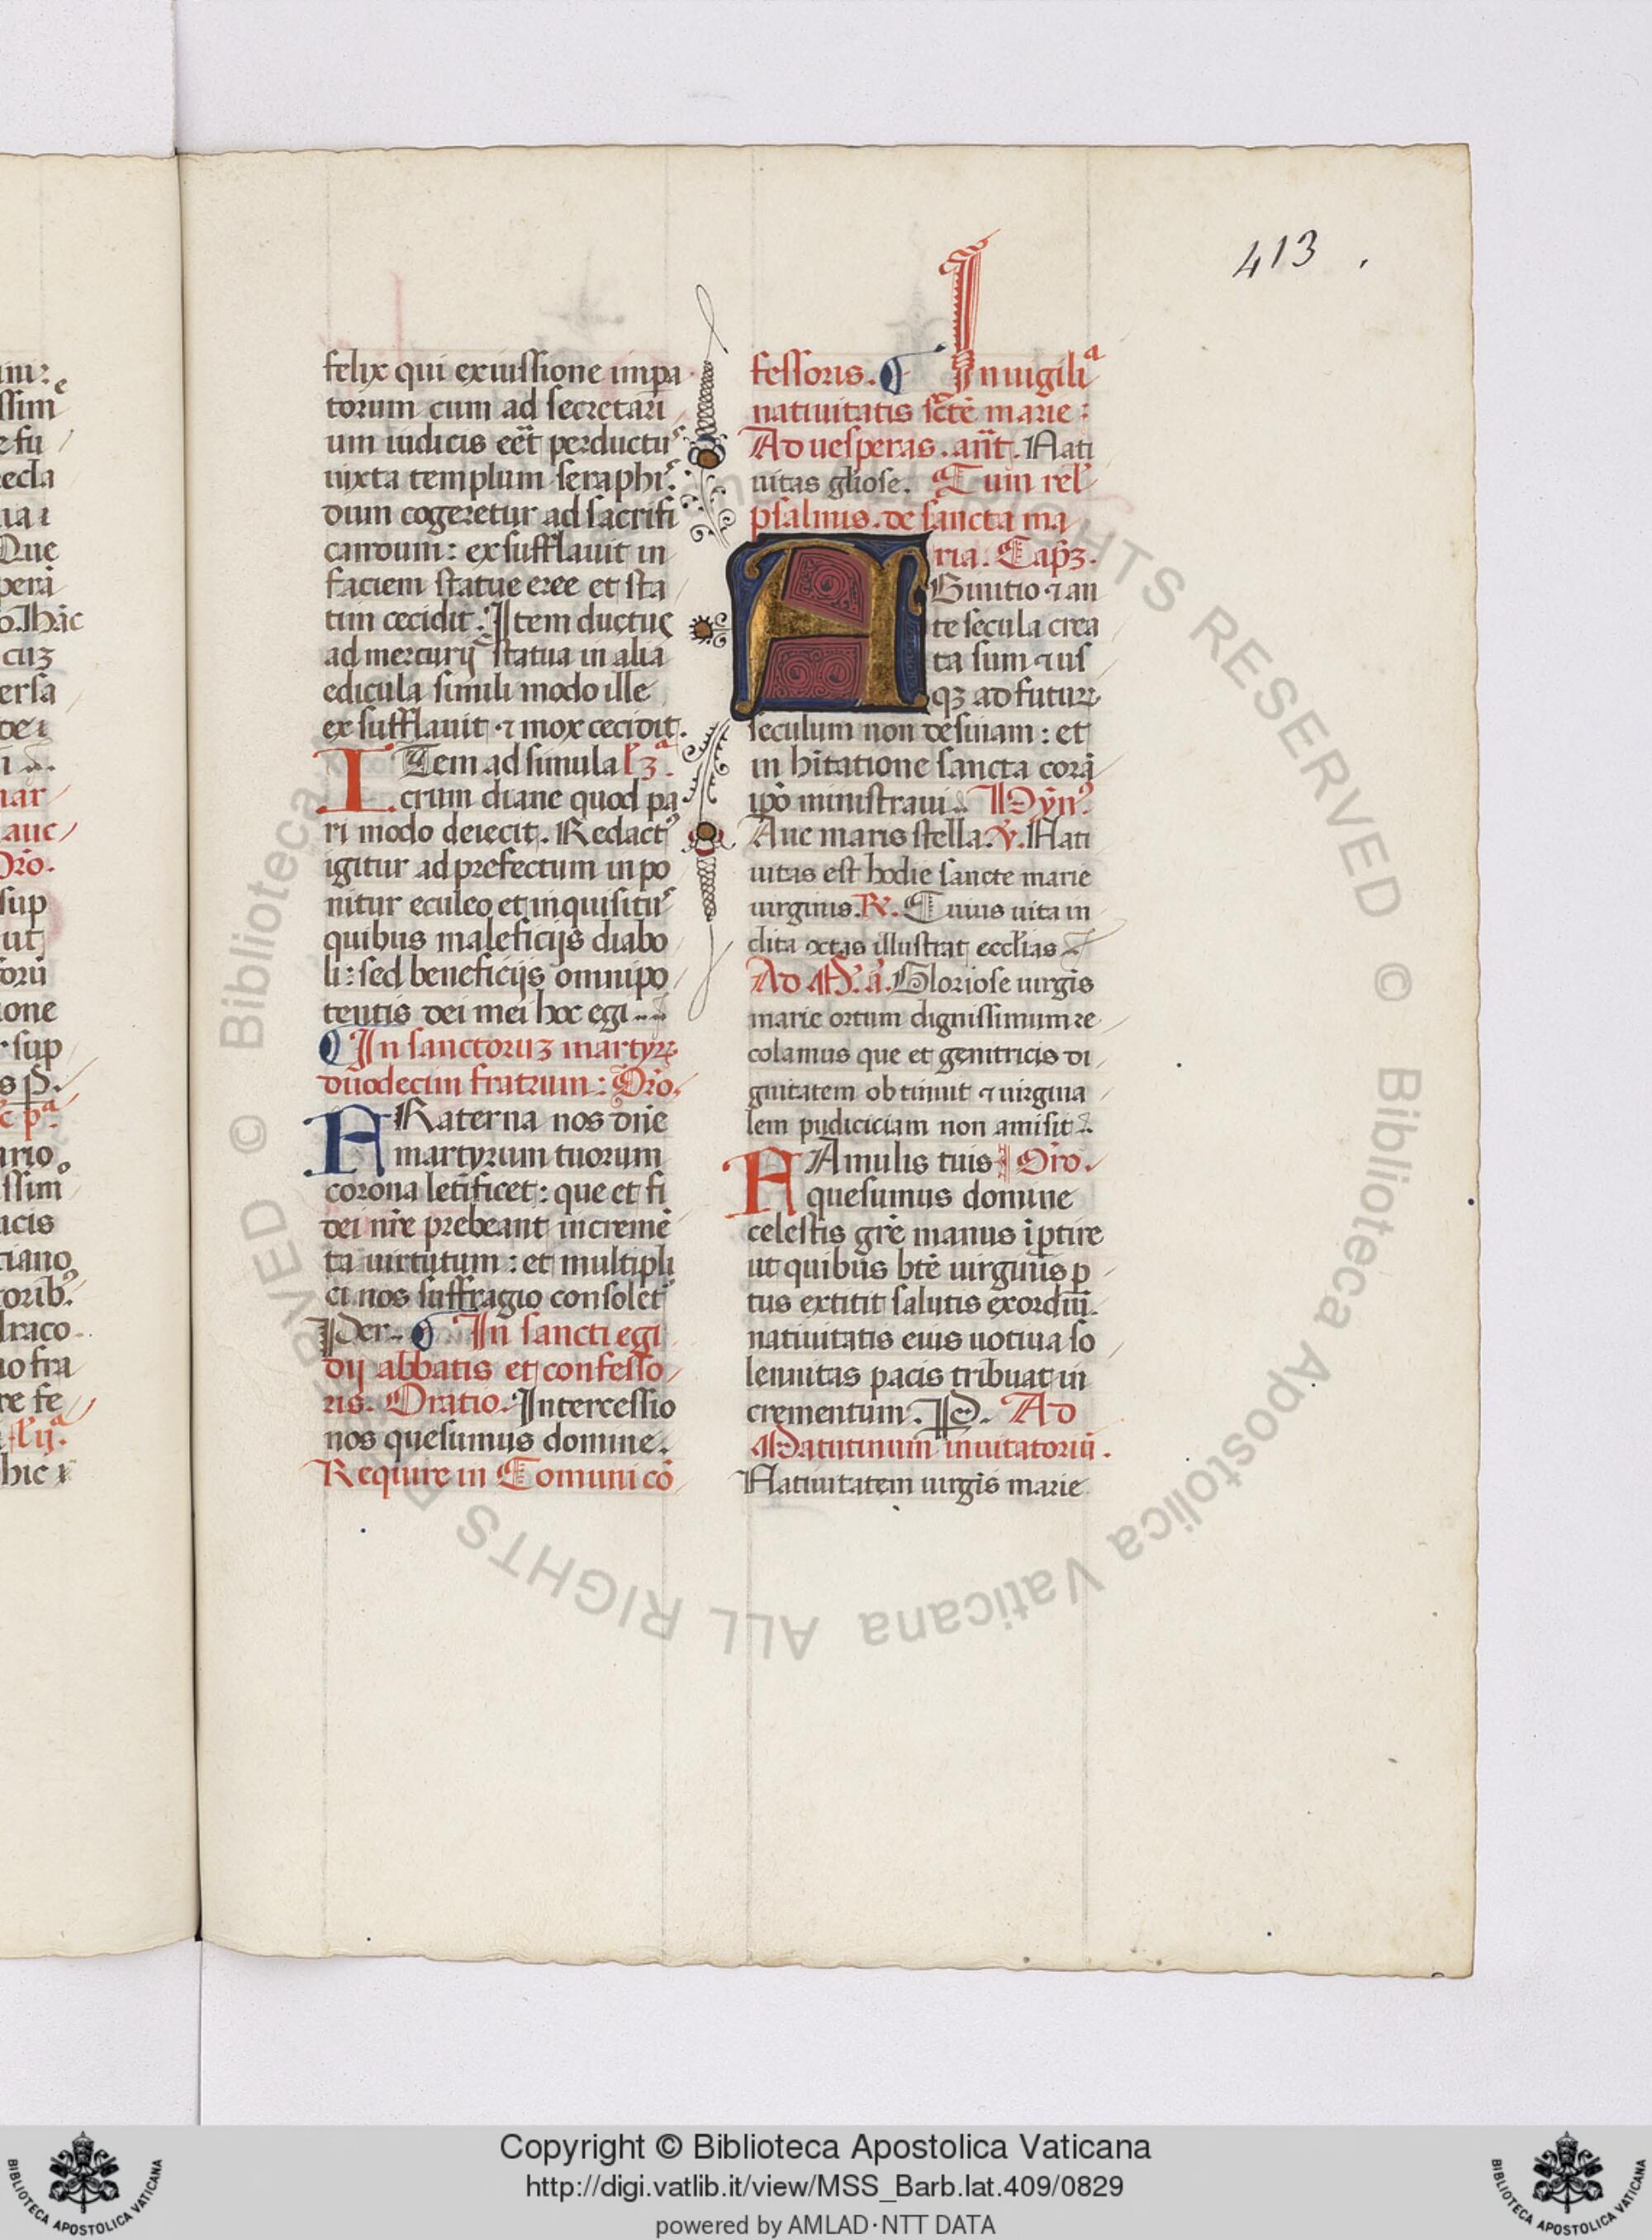 413
felix qui ex iussione impa
torum cum ad secretari
um iudicis eēt perductu᷒
iuxta templum seraphi᷒.
dum cogeretur ad sacrifi
candum: exsufflauit in
faciem statue eree et sta
tim cecidit. Item ductus
ad mercurij statua in alia
edicula simili modo ille
exsufflauit ⁊ mox cecidit.
ITem ad simula lꝫ.ª
crum diane quod pa
ri modo deiecit. Redact᷒
igitur ad prefectum inpo
nitur eculeo et inquisitu᷒
quibus maleficijs diabo
li: sed beneficijs omnipo
tentis dei mei hoc egi
In sanctoruꝫ martyrꝝ
duodecim fratrum: Orō.
FRaterna nos dn̄e
martyrum tuorum
corona letificet: que et fi
dei nr̄e prebeant incremē
ta uirtutum: et multipli
ci nos suffragio consolet᷒
Per. In sancti egi
dij abbatis et confesso
ris. Oratio. Intercessio
nos quesumus domine.
Require in Comuni cō
fessoris. In uigiliª
natiuitatis scē marie:
Ad uesperas. ant̄. Nati
uitas gl̄iose. Cum rel᷒
psalmis. de sancta ma
ria. Capꝫ.
AB initio ⁊ an
te secula crea
ta sum ⁊ us
qꝫ ad futurꝝ
seculum non desinam: et
in hītatione sancta corā
ip̄o ministraui. Hyn᷒.
Aue maris stella. ℣. Nati
uitas est hodie sancte marie
uirginis. ℟. Cuius uita in
clita ctās illustrat eccl̄ias
Ad M. ā. Gloriose uirgīs
marie ortum dignissimum re
colamus que et genitricis di
gnitatem obtinuit ⁊ uirgina
lem pudiciciam non amisit.
FAmulis tuis Orō.
quesumus domine
celestis grē munus īꝑtire
ut quibus btē uirginis ꝑ
tus extitit salutis exordiū.
natiuitatis eius uotiua so
lennitas pacis tribuat in
crementum. P. Ad
Matutinum inuitatoriū.
Natiuitatem uirgīs marie
Copyright © Biblioteca Apostolica Vaticana
http://digi.vatlib.it/view/MSS_Barb.lat.409/0829
powered by AMLAD·NTT DATA
BIBLIOTECA APOSTOLICA VATICANA
BIBLIOTECA APOSTOLICA VATICANA
© Biblioteca Apostolica Vaticana ALL RIGHTS RESERVED